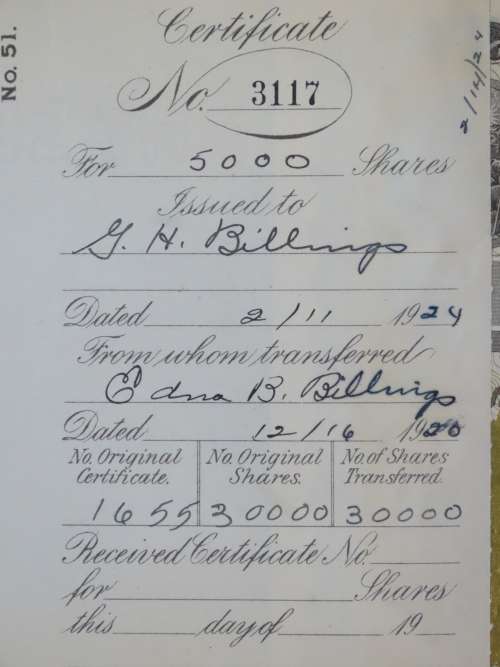 No. 51.
2/14/24
Certificate
No. 3117
For 5000 Shares
Issued to
G. H. Billings
Dated 2/11 1924
From whom transferred
Edna B. Billings
Dated 12/16 1920
No. Original Certificate. No. Original Shares. No. of Shares Transferred.
1655 30000 30000
Received Certificate No.
for Shares
this day of 19